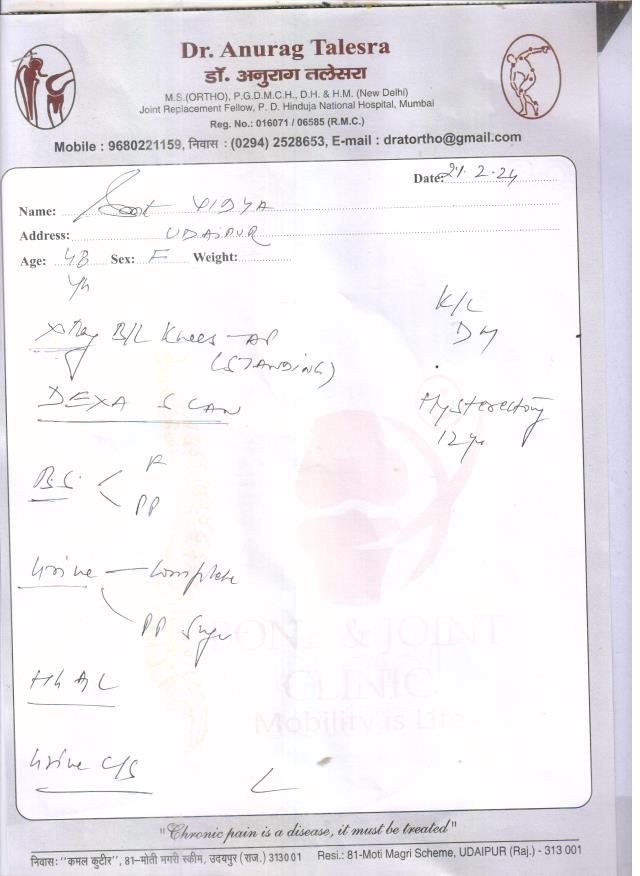 Dr. Anurag Talesra
डॉ. अनुराग तलेसरा
M.S.(ORTHO), P.G.D.M.C.H., D.H. & H.M. (New Delhi)
Joint Replacement Fellow, P. D. Hinduja National Hospital, Mumbai
Reg. No.: 016071 / 06585 (R.M.C.)
Mobile : 9680221159, निवास : (0294) 2528653, E-mail : dratortho@gmail.com
Date: 21.2.24
Name: Smt VIDYA
Address: UDAIPUR
Age: 48 Sex: F Weight:
Yh
K/C
DM
X Ray B/L Knees - AP
(STANDING)
DEXA SCAN
Hysterectomy
12 yr
B.S. F
PP
Urine - Complete
PP Sugar
HbA1C
Urine C/S
BONE & JOINT
CLINIC
Mobility is Life
"Chronic pain is a disease, it must be treated"
निवास: "कमल कुटीर", 81-मोती मगरी स्कीम, उदयपुर (राज.) 313001 Resi.: 81-Moti Magri Scheme, UDAIPUR (Raj.) - 313 001